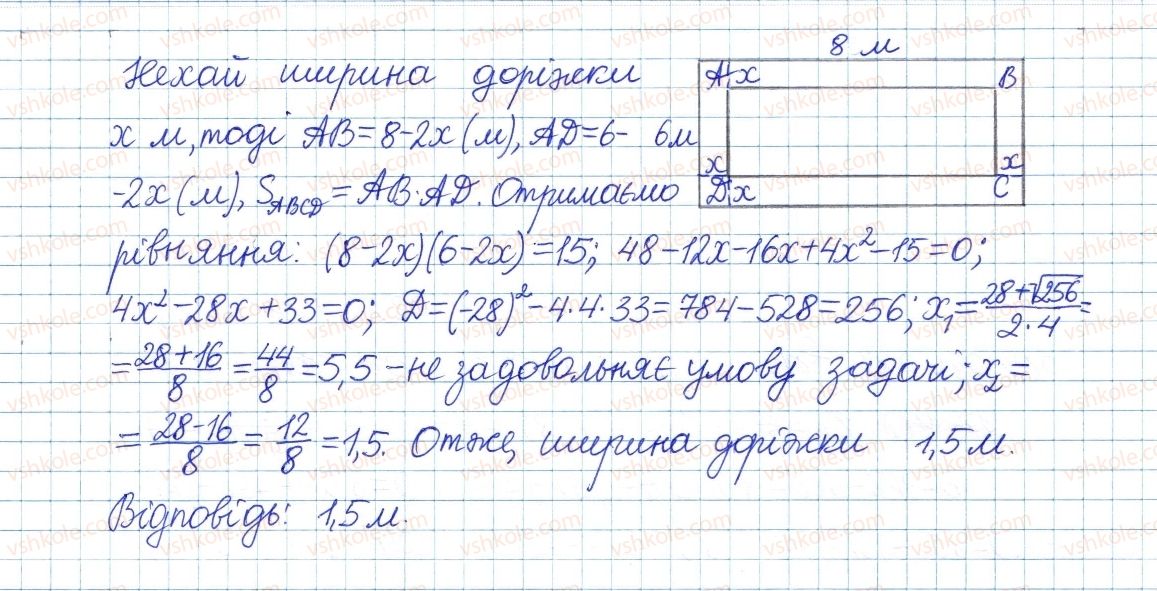 8 м
Нехай ширина доріжки
A x B
x м, тоді AB=8-2x (м), AD=6- 6м
x x
-2x (м), S_ABCD = AB·AD. Отримаємо
D x C
рівняння: (8-2x)(6-2x)=15; 48-12x-16x+4x²-15=0;
4x²-28x+33=0; D=(-28)²-4·4·33=784-528=256; x₁=(28+√256)/(2·4)=
=(28+16)/8=44/8=5,5 -не задовольняє умову задачі; x₂=
=(28-16)/8=12/8=1,5. Отже, ширина доріжки 1,5 м.
Відповідь: 1,5 м.
vshkole.com